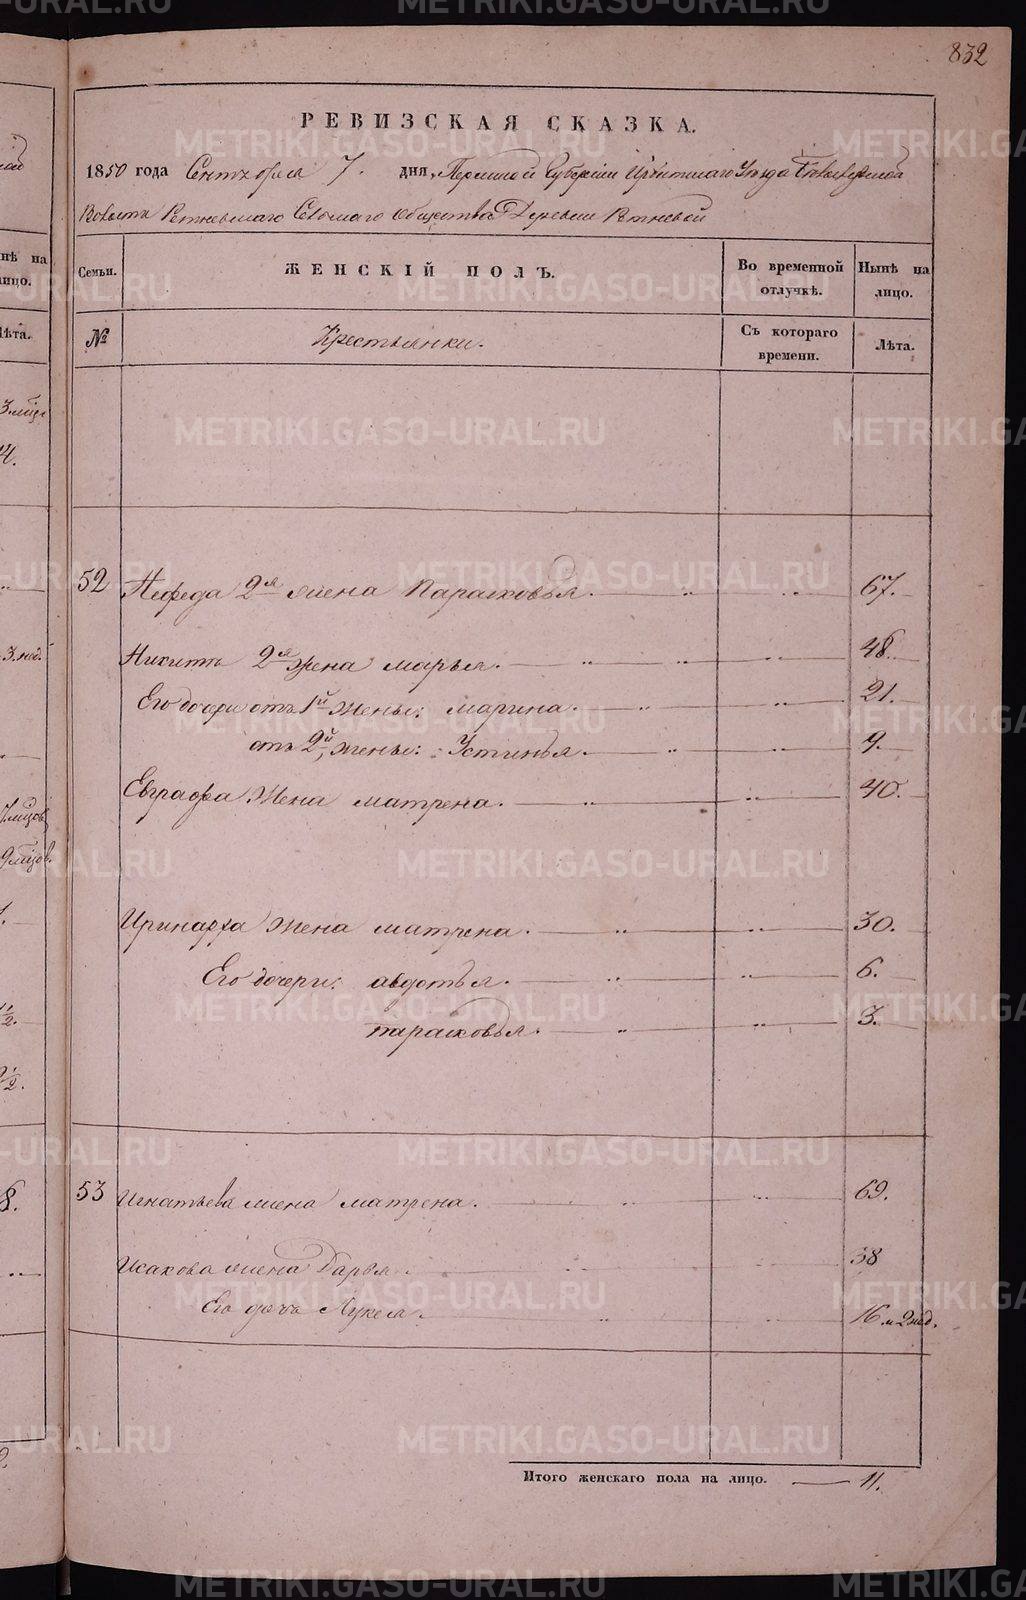 832
РЕВИЗСКАЯ СКАЗКА.
1850 года Сентября 7. дня, Пермской Губернии Ирбитскаго Уезда
Волости Ретневскаго Сельскаго Общества Деревни Ретневой
Семьи.
ЖЕНСКІЙ ПОЛЪ.
Во временной отлучкѣ.
Нынѣ на лицо.
№
Крестьянки.
Съ котораго времени.
Лѣта.
52 Нефеда 2я жена Парасковья. 67.
Никиты 2я жена марья. 48.
Его дочери отъ 1й жены: марина. 21.
отъ 2й жены: Устинья. 9.
Евграфа жена матрена. 40.
Иринарха жена матрена. 30.
Его дочери: авдотья. 6.
парасковья. 3.
53 Игнатьева жена матрена. 69.
Исакова жена Дарья. 38
Его дочь Лукея. 16 и 2 нед.
Итого женскаго пола на лицо. 11.
METRIKI.GASO-URAL.RU